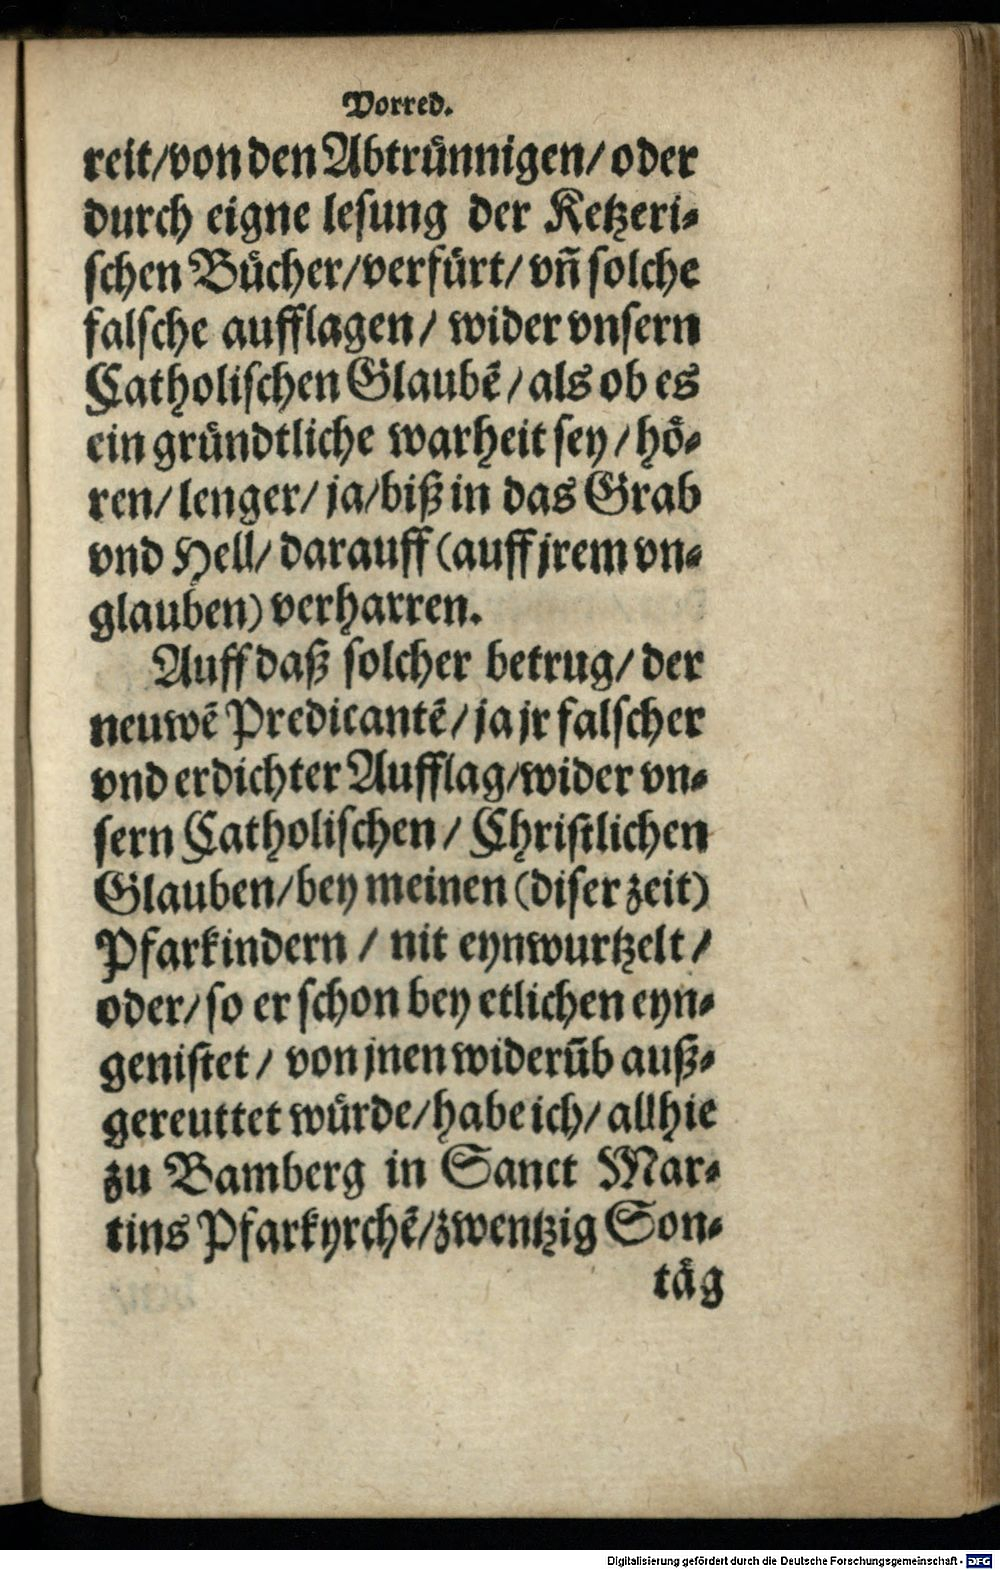 Vorred.
reit/von den Abtrünnigen/ oder
durch eigne lesung der Ketzeri-
schen Bücher/verfürt/ vñ solche
falsche aufflagen/ wider vnsern
Catholischen Glaubẽ/als ob es
ein gründtliche warheit sey/hö-
ren/ lenger/ ja/biß in das Grab
vnd Hell/ darauff (auff jrem vn-
glauben) verharren.
Auff daß solcher betrug/ der
neuwẽ Predicantẽ/ja jr falscher
vnd erdichter Aufflag/wider vn-
sern Catholischen/ Christlichen
Glauben/bey meinen (diser zeit)
Pfarkindern / nit eynwurtzelt/
oder/so er schon bey etlichen eyn-
genistet/ von jnen widerũb auß-
gereuttet würde/habe ich/ allhie
zu Bamberg in Sanct Mar-
tins Pfarkyrchẽ/zwentzig Son-
täg
Digitalisierung gefördert durch die Deutsche Forschungsgemeinschaft - DFG